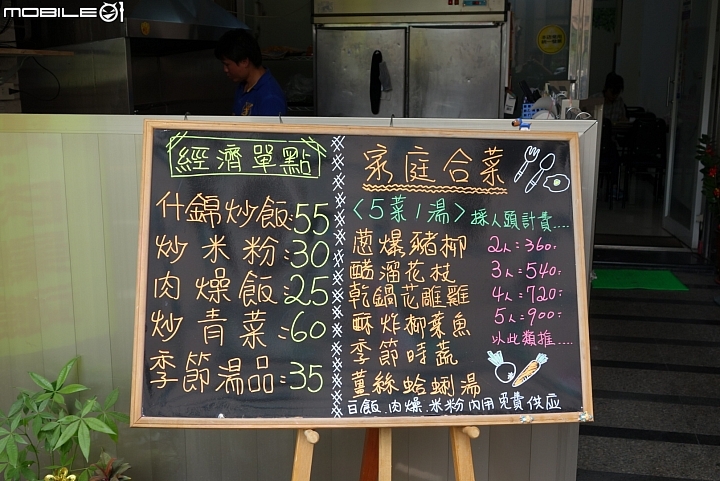 MOBILE01
經濟單點
什錦炒飯:55
炒米粉:30
肉燥飯:25
炒青菜:60
季節湯品:35
家庭合菜
<5菜1湯>採人頭計費....
蔥爆豬柳
醋溜花枝
乾鍋花雕雞
酥炸柳葉魚
季節時蔬
薑絲蛤蜊湯
2人=360.
3人=540.
4人=720.
5人=900.
以此類推.....
白飯.肉燥.米粉內用免費供应